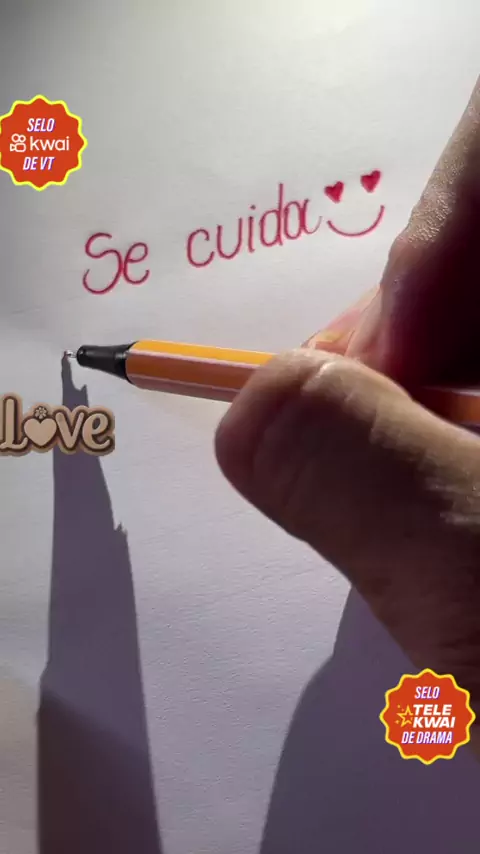 SELO
kwai
DE VT
Se cuida
Love
SELO
TELE
KWAI
DE DRAMA